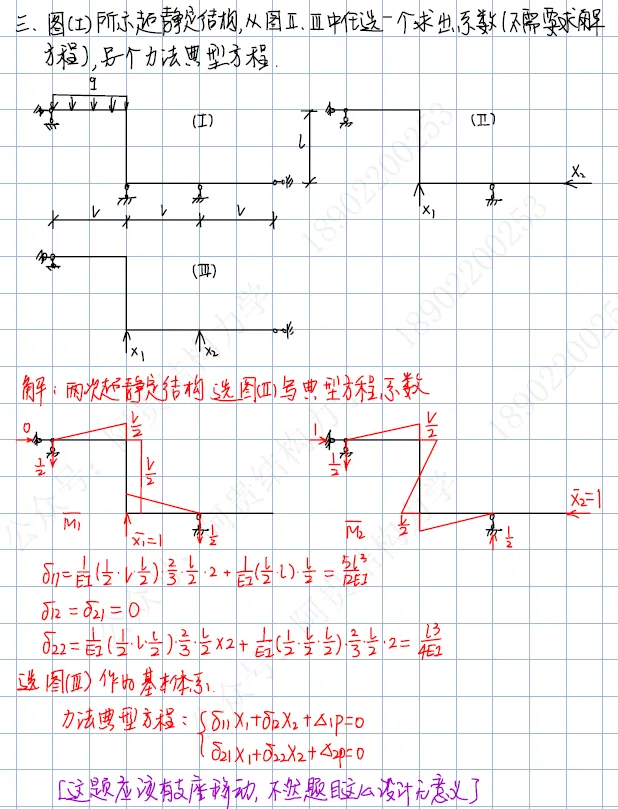 三、图(I)所示超静定结构,从图II、III中任选一个求出系数(不需要求解
方程),另个力法典型方程.
q
(I)
l
(II)
X₂
X₁
l l l
(III)
X₁ X₂
解:两次超静定结构 选图(II)写典型方程系数
0 l/2 1 l/2
1/2 l/2 1/2
M̄₁ X̄₁=1 1/2 M̄₂ l/2 X̄₂=1 1/2
δ₁₁=1/EI(1/2·l·l/2)·2/3·l/2·2+1/EI(l/2·l)·l/2=5l³/12EI
δ₁₂=δ₂₁=0
δ₂₂=1/EI(1/2·l·l/2)·2/3·l/2×2+1/EI(1/2·l/2·l/2)·2/3·l/2·2=l³/4EI
选图(III)作为基本体系.
力法典型方程:{δ₁₁X₁+δ₁₂X₂+Δ₁P=0
δ₂₁X₁+δ₂₂X₂+Δ₂P=0
[这题应该有支座移动,不然题目这么设计无意义]
公众号:阿贵结构力学 18902200253